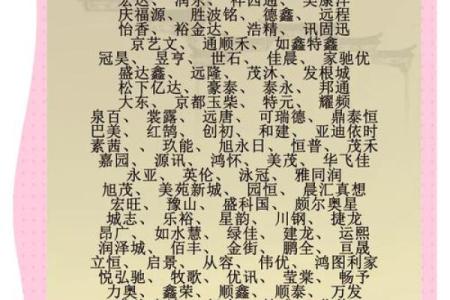 宏达、润东、祥四通、昊康洋
庆福源、胜波铭、德鑫、远程
怡香、裕金达、浩精、讯固迅
京艺文、通顺禾、如鑫特鑫
冠昊、昱亨、世石、佳晨、家驰优
盛达鑫、远隆、茂沐、发根城
松下亿达、豪泰、泰永、邦通
大东、京都玉柴、特元、耀频
泉百、裳露、远唐、可瑞德、鼎泰恒
巴美、红鹄、创初、和建、亚迪依时
素茜、、玖能、旭永日、恒普、茂禾
嘉园、源讯、鸿怀、美茂、华飞佳
永亚、英伦、泳冠、雅同润
旭茂、美苑新城、园恒、晨汇真想
宏旺、豫山、盛科国、颇尔奥星
城志、乐裕、星韵、川钢、捷龙
昂广、如水慧、绿佳、建龙、运熙
润泽城、佰丰、金街、鹏全、亘晟
立恒、启景、从容、伟优、鸿图利家
悦弘驰、牧歌、优讯、莹棠、畅予
力奥、鑫荣、顺鑫、顺泰、万发